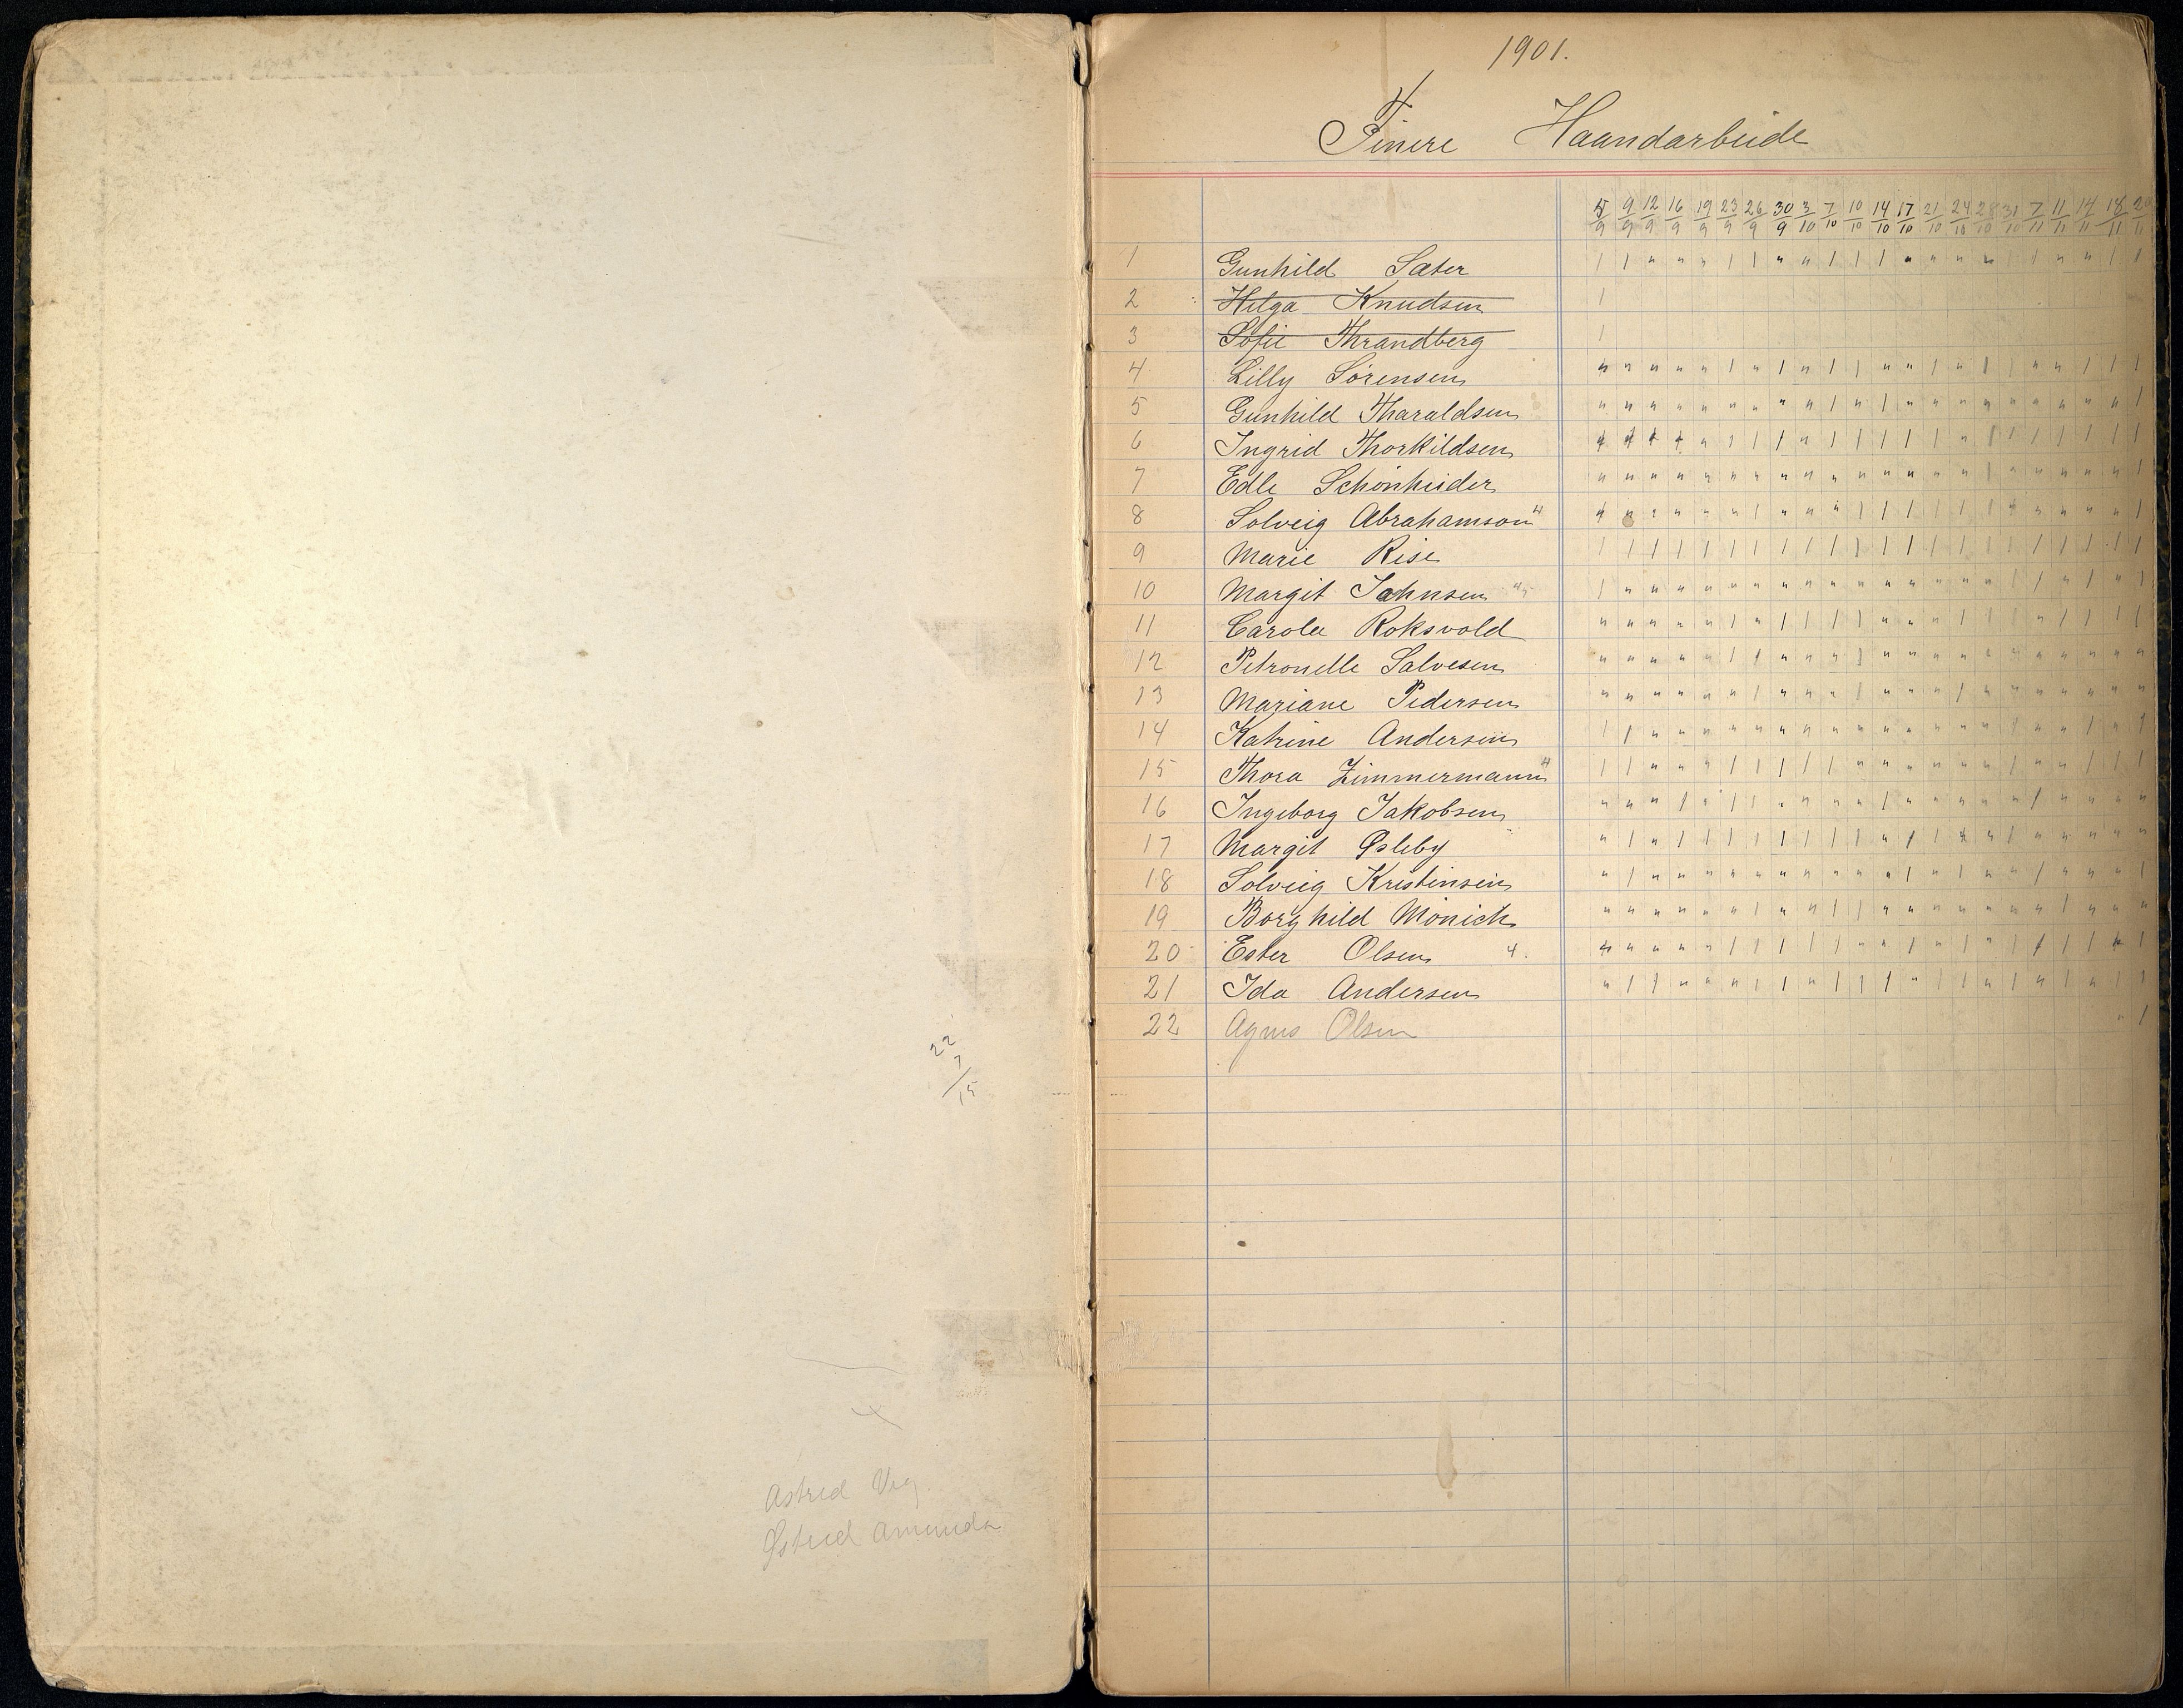 22
7
/15
Astrid
1901.
Finere Haandarbeide
5/9 9/9 12/9 16/9 19/9 23/9 26/9 30/9 3/10 7/10 10/10 14/10 17/10 21/10 24/10 28/10 31/10 7/11 11/11 14/11 18/11
1 Gunhild Sæter
2 Helga Knudsen
3 Sofie Thrandberg
4 Lilly Sørensen
5 Gunhild Tharaldsen
6 Ingrid Thorkildsen
7 Edle Schönheider
8 Solveig Abrahamson 4
9 Marie Rise
10 Margit Jahnsen
11 Carola Roksvold
12 Petronelle Salvesen
13 Mariane Pedersen
14 Katrine Andersen
15 Thora Zimmermann 4
16 Ingeborg Jakobsen
17 Margit Øsleby
18 Solveig Kristensen
19 Borghild Mönich
20 Ester Olsen 4.
21 Ida Andersen
22 Agnes Olsen